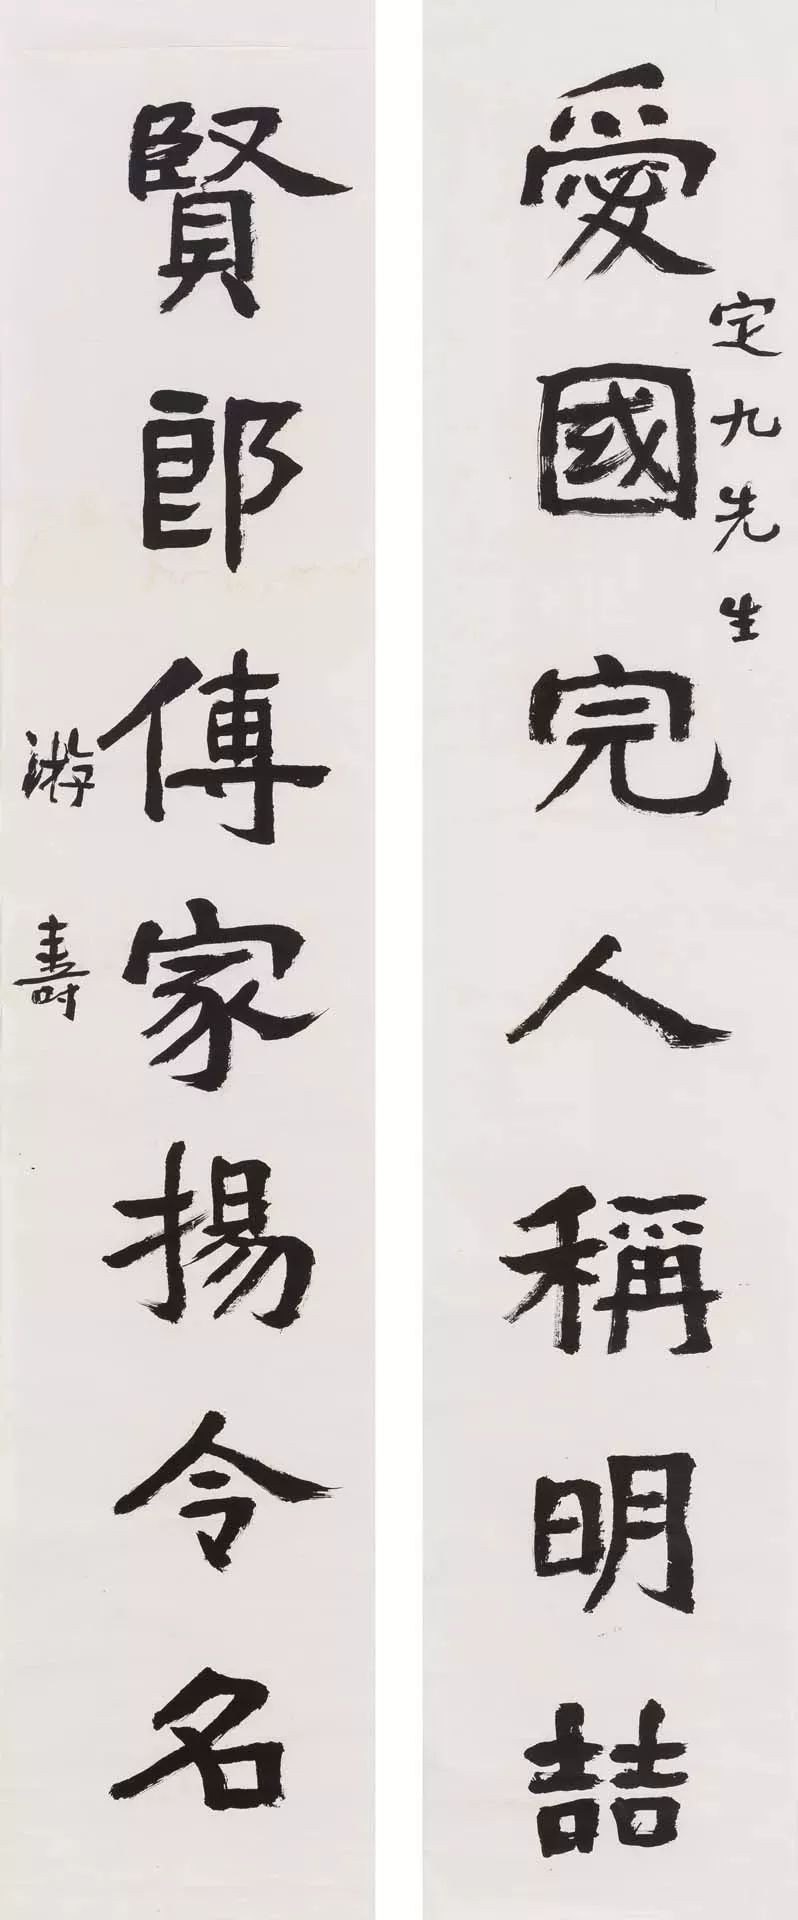 定九先生
愛國完人稱明喆
賢郎傳家揚令名
游壽